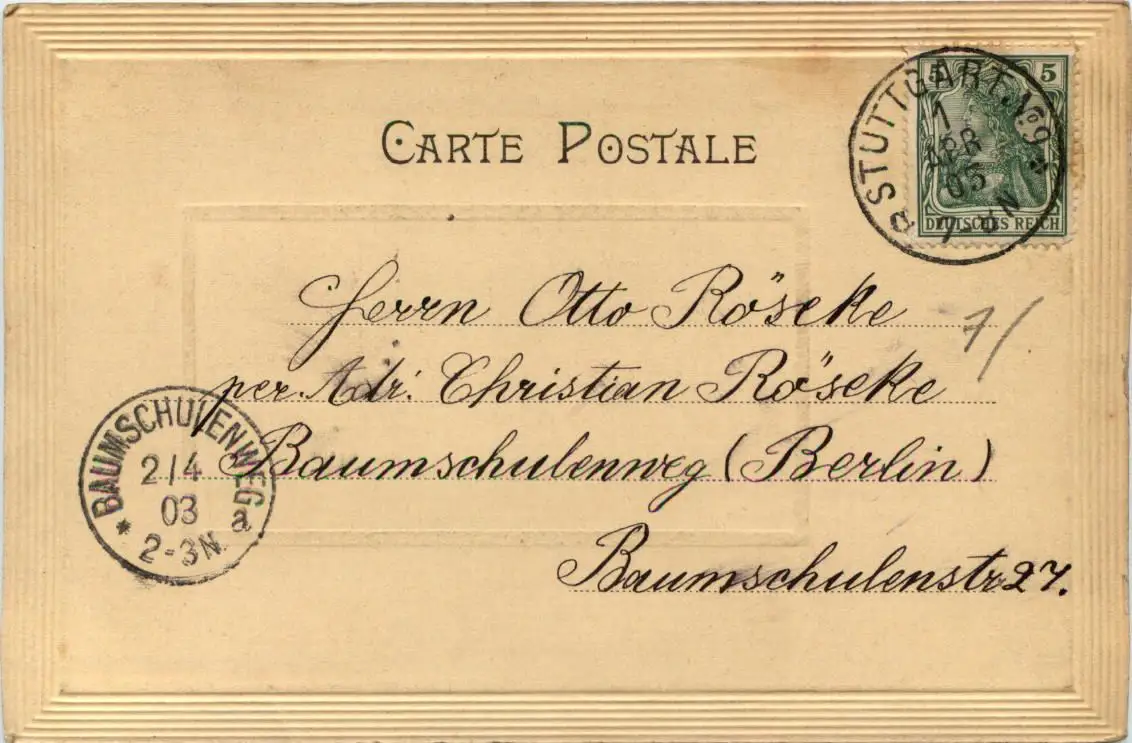 CARTE POSTALE
STUTTGART No 9 *
1
APR
03
7-8 N
a
5 5
DEUTSCHES REICH
Herrn Otto Röseke
7/
per. Adr. Christian Röseke
Baumschulenweg (Berlin)
Baumschulenstr 27.
* BAUMSCHULENWEG a
2/4
03
2-3N.